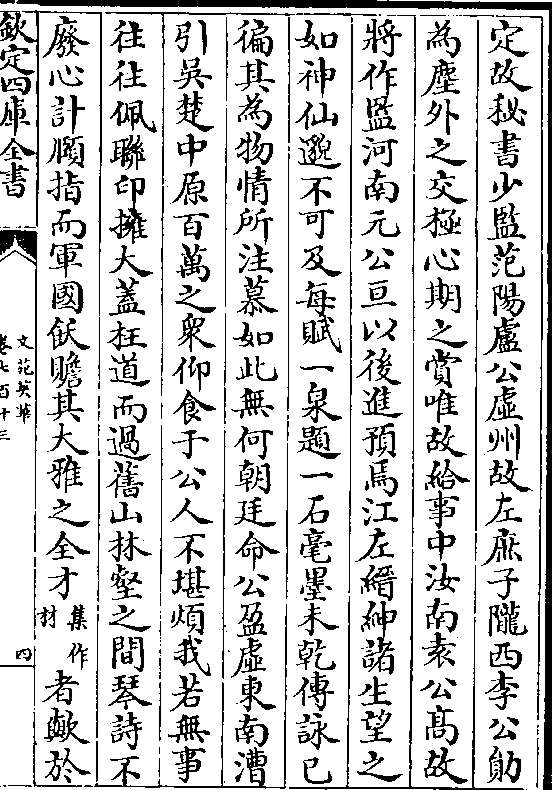 定故秘書少監范陽盧公虛州故左庶子隴西李公勛
為塵外之交極心期之賞唯故給事中汝南袁公髙故
將作監河南元公亘以後進預焉江左縉紳諸生望之
如神仙邈不可及每賦一泉題一石毫墨未乾傳詠已
徧其為物情所注慕如此無何朝廷命公盈虛東南漕
引吳楚中原百萬之衆仰食于公人不堪煩我若無事
往往佩聯印擁大蓋枉道而過舊山林壑之間琴詩不
廢心計頤指而軍國飫贍其大雅之全才集作材者歟於
欽定四庫全書
文苑英華
卷七百十三
四